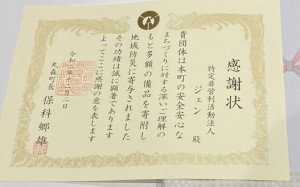 感謝状
特定非営利活動法人
ジェン 殿
貴団体は本町の安全安心な
まちづくりに対する深いご理解の
もと多額の備品を寄附し
地域防災に寄与されました
その功績は誠に顕著であります
よってここに感謝の意を表します
丸森町長 保科郷雄